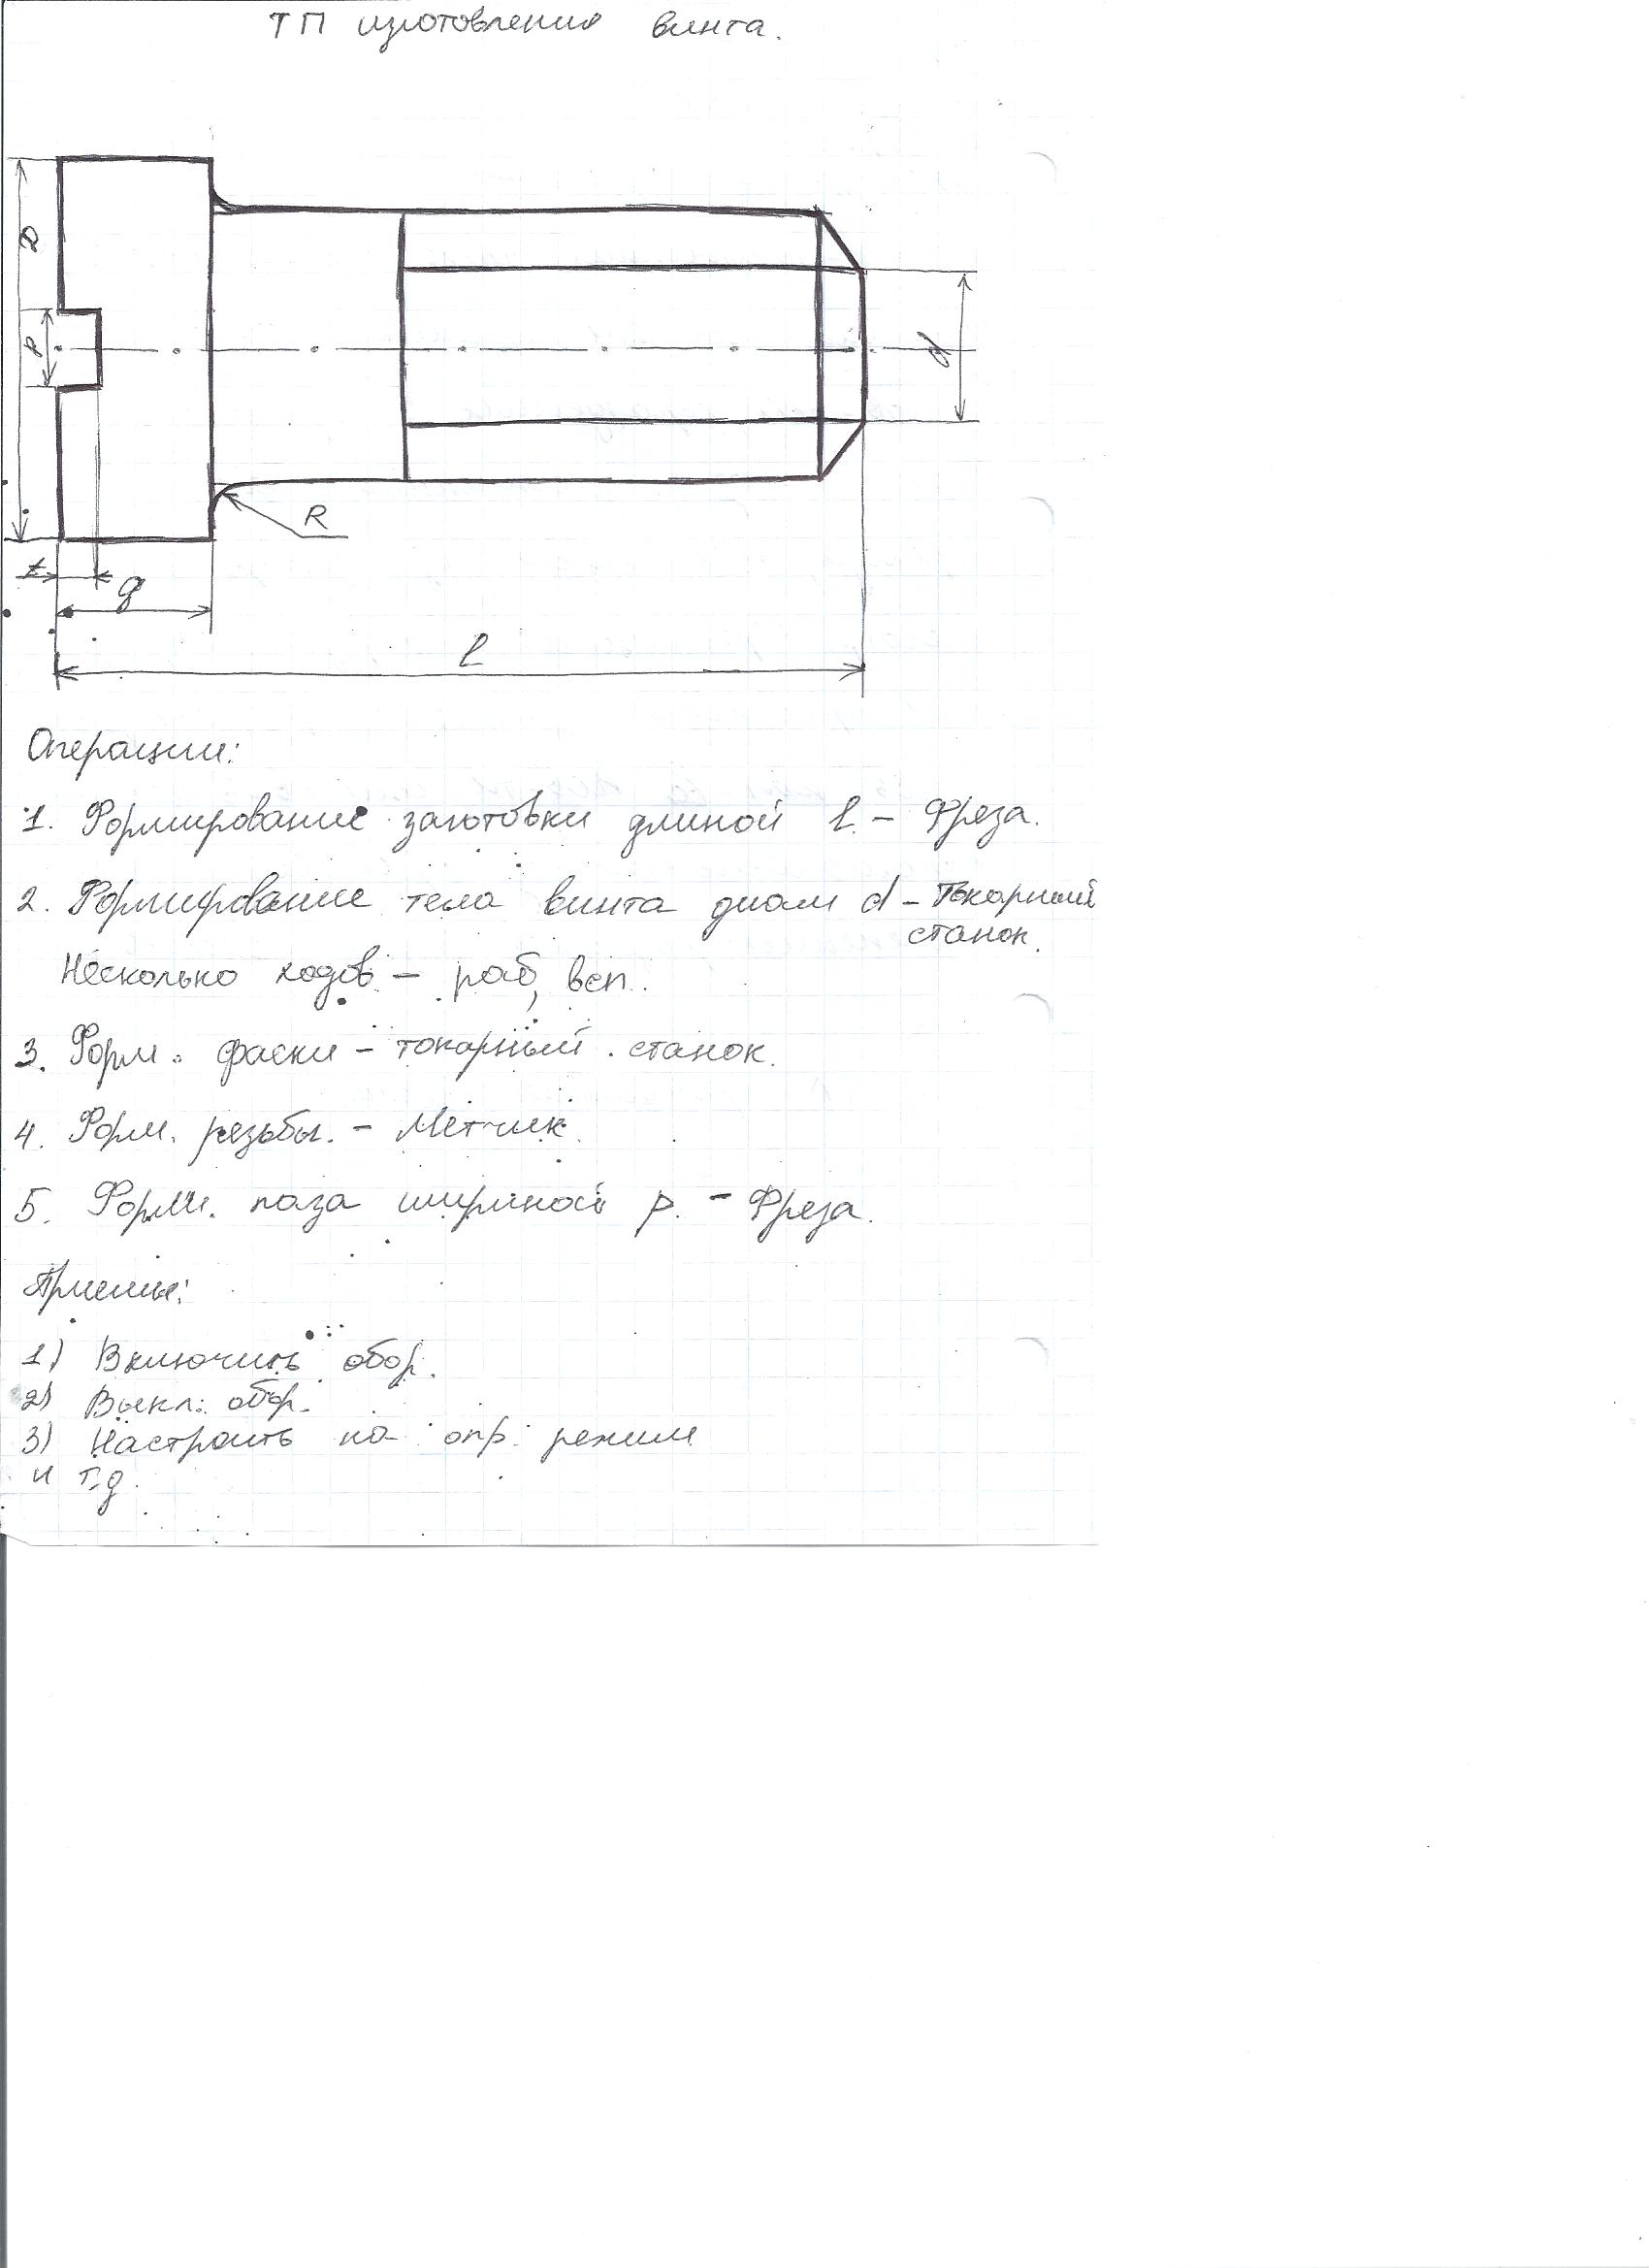 ТП изготовления винта.
D
p
d
R
t
q
l
Операции:
1. Формирование заготовки длиной l. - Фреза.
2. Формирование тела винта диам d - Токарный
станок.
Несколько ходов - раб, всп.
3. Форм. фаски - токарный станок.
4. Форм. резьбы. - Метчик.
5. Форм. паза шириной p. - Фреза.
Приемы:
1) Включить обор.
2) Выкл. обор.
3) Настроить на опр. режим
и т.д.